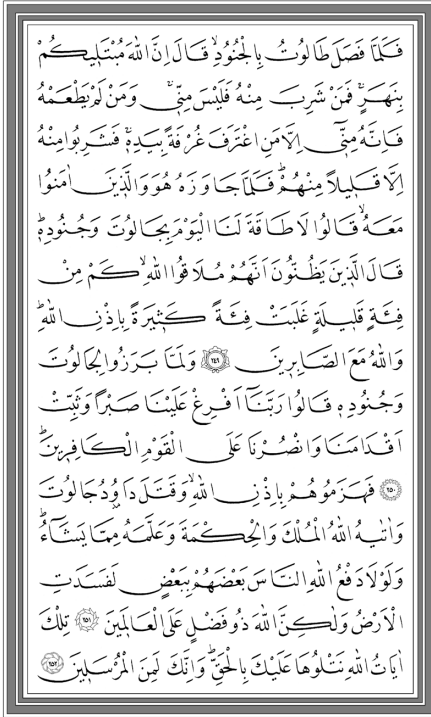 فَلَمَّا فَصَلَ طَالُوتُ بِالْجُنُودِۙ قَالَ اِنَّ اللّٰهَ مُبْتَل۪يكُمْ
بِنَهَرٍۚ فَمَنْ شَرِبَ مِنْهُ فَلَيْسَ مِنّ۪يۚ وَمَنْ لَمْ يَطْعَمْهُ
فَاِنَّهُ مِنّ۪ٓي اِلَّا مَنِ اغْتَرَفَ غُرْفَةً بِيَدِه۪ۚ فَشَرِبُوا مِنْهُ
اِلَّا قَل۪يلاً مِنْهُمْۜ فَلَمَّا جَاوَزَهُ هُوَ وَالَّذ۪ينَ اٰمَنُوا
مَعَهُۙ قَالُوا لَا طَاقَةَ لَنَا الْيَوْمَ بِجَالُوتَ وَجُنُودِه۪ۜ
قَالَ الَّذ۪ينَ يَظُنُّونَ اَنَّهُمْ مُلَاقُوا اللّٰهِۙ كَمْ مِنْ
فِئَةٍ قَل۪يلَةٍ غَلَبَتْ فِئَةً كَث۪يرَةً بِاِذْنِ اللّٰهِۜ
وَاللّٰهُ مَعَ الصَّابِر۪ينَ ﴿٢٤٩﴾ وَلَمَّا بَرَزُوا لِجَالُوتَ
وَجُنُودِه۪ قَالُوا رَبَّنَٓا اَفْرِغْ عَلَيْنَا صَبْراً وَثَبِّتْ
اَقْدَامَنَا وَانْصُرْنَا عَلَى الْقَوْمِ الْكَافِر۪ينَۜ
﴿٢٥٠﴾ فَهَزَمُوهُمْ بِاِذْنِ اللّٰهِۙ وَقَتَلَ دَاوُ۫دُ جَالُوتَ
وَاٰتٰيهُ اللّٰهُ الْمُلْكَ وَالْحِكْمَةَ وَعَلَّمَهُ مِمَّا يَشَٓاءُۜ
وَلَوْلَا دَفْعُ اللّٰهِ النَّاسَ بَعْضَهُمْ بِبَعْضٍ لَفَسَدَتِ
الْاَرْضُ وَلٰكِنَّ اللّٰهَ ذُو فَضْلٍ عَلَى الْعَالَم۪ينَ ﴿٢٥١﴾ تِلْكَ
اٰيَاتُ اللّٰهِ نَتْلُوهَا عَلَيْكَ بِالْحَقِّۜ وَاِنَّكَ لَمِنَ الْمُرْسَل۪ينَ ﴿٢٥٢﴾